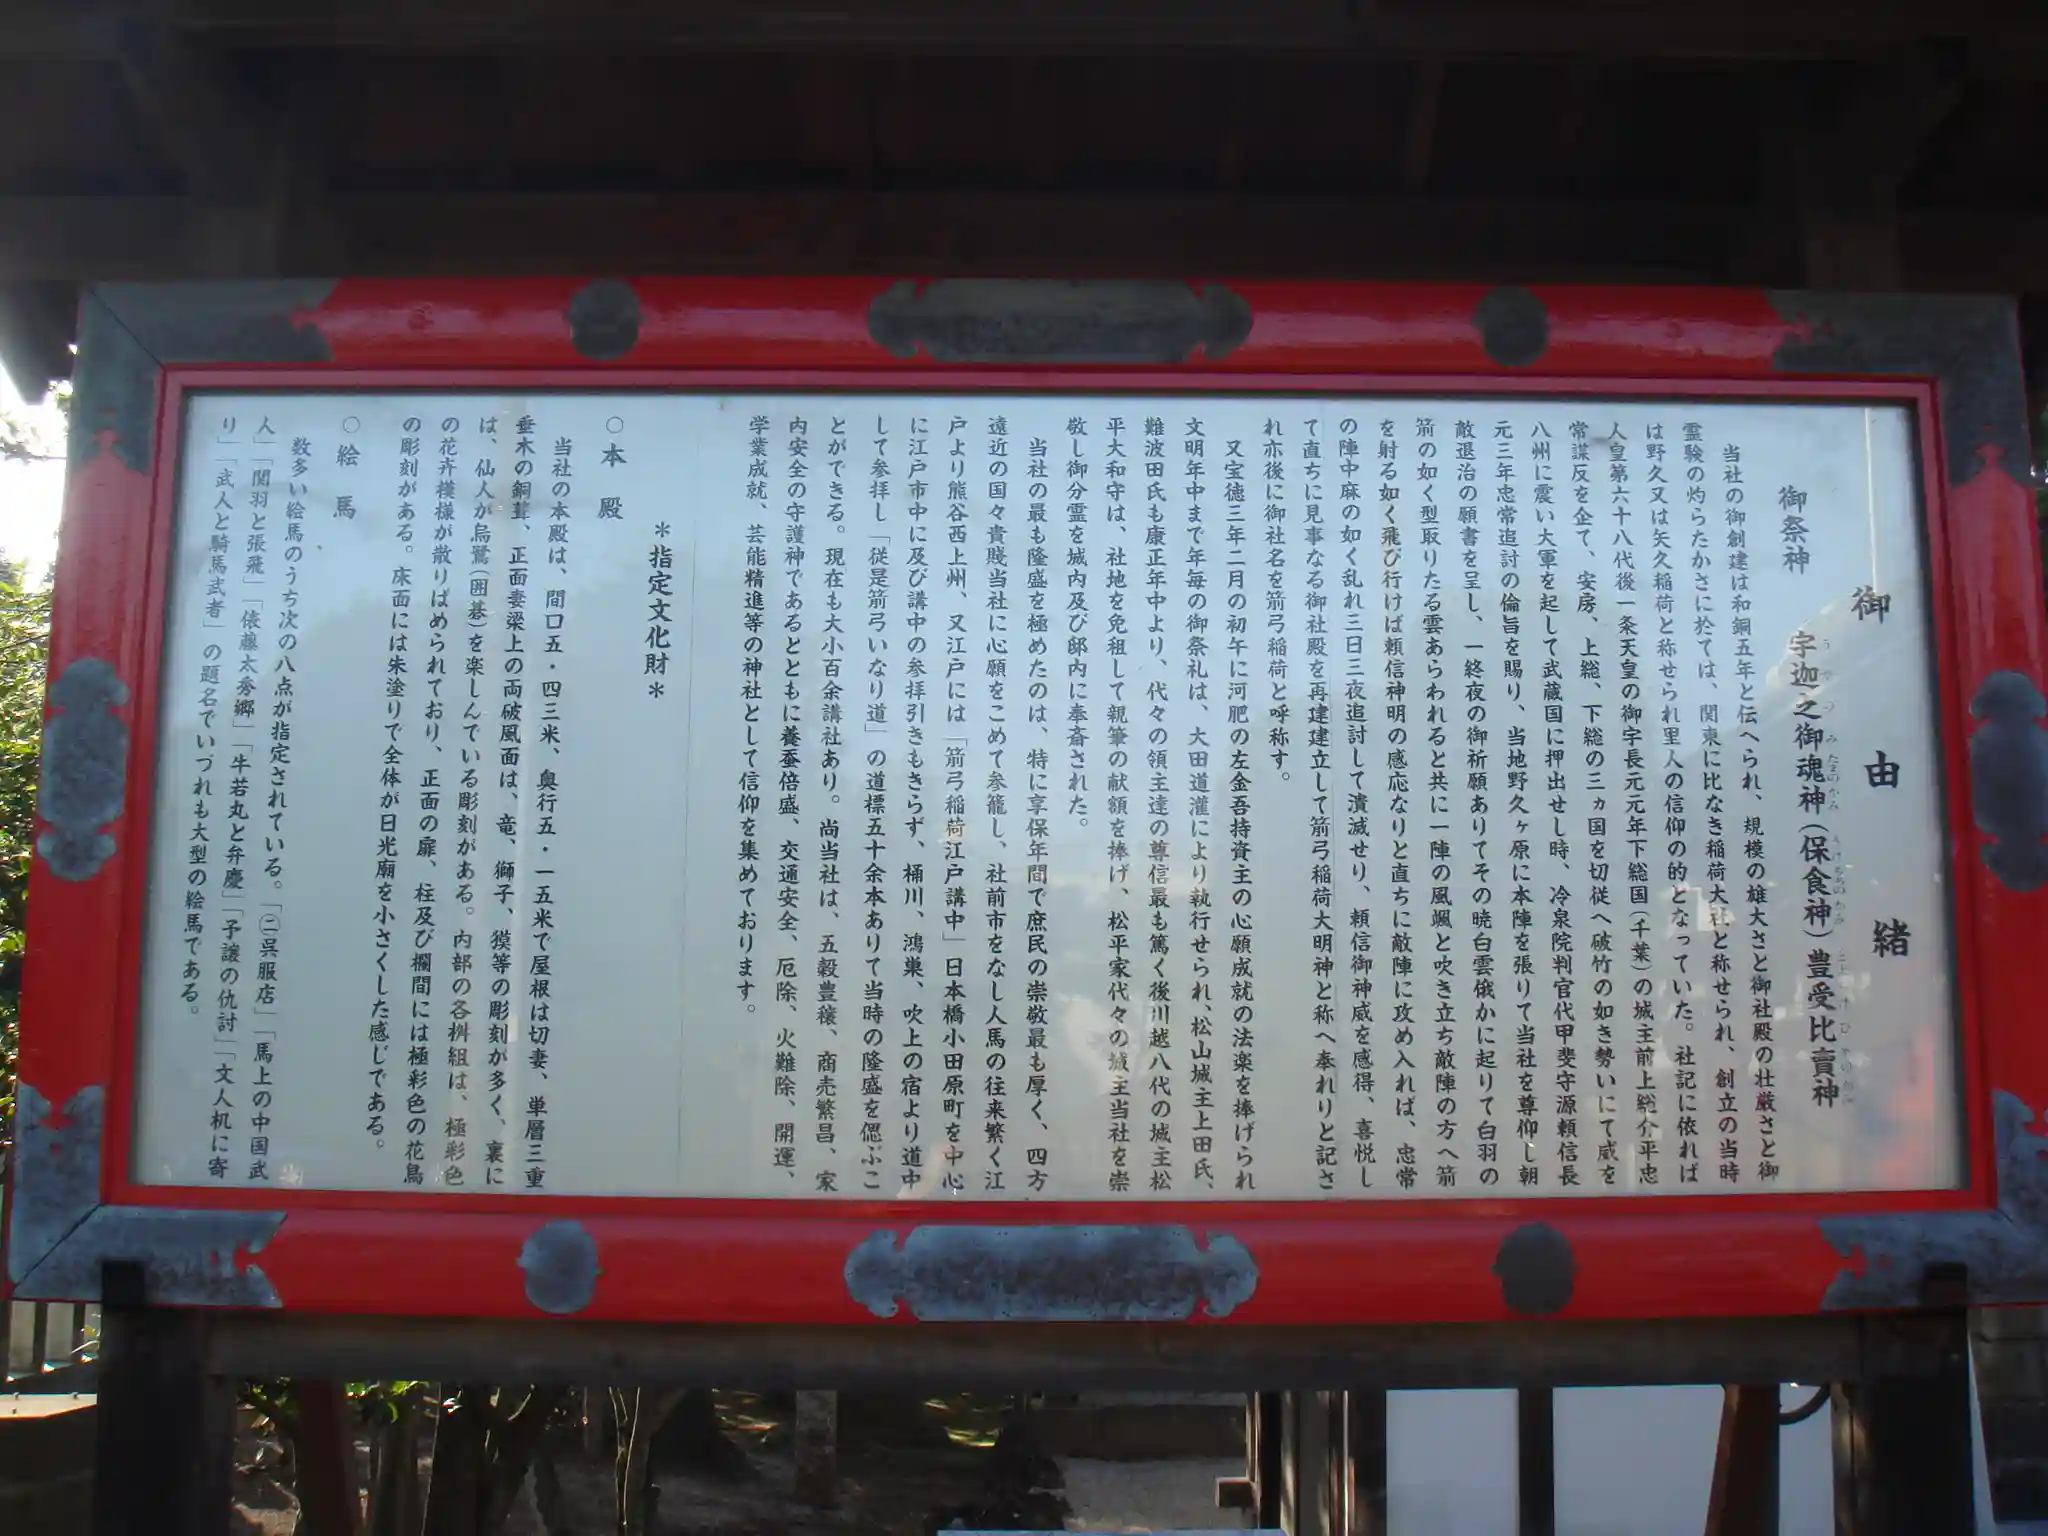 御由緒
御祭神　宇迦之御魂神（保食神）豊受比賣神
当社の御創建は和銅五年と伝へられ、規模の雄大さと御社殿の壮厳さと御
霊験の灼らたかさに於ては、関東に比なき稲荷大社と称せられ、創立の当時
は野久又は矢久稲荷と称せられ里人の信仰の的となっていた。社記に依れば
人皇第六十八代後一条天皇の御宇長元元年下総国（千葉）の城主前上総介平忠
常謀反を企て、安房、上総、下総の三ヵ国を切従へ破竹の如き勢いにて威を
八州に震い大軍を起して武蔵国に押出せし時、冷泉院判官代甲斐守源頼信長
元三年忠常追討の倫旨を賜り、当地野久ヶ原に本陣を張りて当社を尊仰し朝
敵退治の願書を呈し、一終夜の御祈願ありてその暁白雲俄かに起りて白羽の
箭の如く型取りたる雲あらわれると共に一陣の風颯と吹き立ち敵陣の方へ箭
を射る如く飛び行けば頼信神明の感応なりと直ちに敵陣に攻め入れば、忠常
の陣中麻の如く乱れ三日三夜追討して潰滅せり、頼信御神威を感得、喜悦し
て直ちに見事なる御社殿を再建建立して箭弓稲荷大明神と称へ奉れりと記さ
れ亦後に御社名を箭弓稲荷と呼称す。
又宝徳三年二月の初午に河肥の左金吾持資主の心願成就の法楽を捧げられ
文明年中まで年毎の御祭礼は、大田道灌により執行せられ、松山城主上田氏、
難波田氏も康正年中より、代々の領主達の尊信最も篤く後川越八代の城主松
平大和守は、社地を免租して親筆の献額を捧げ、松平家代々の城主当社を崇
敬し御分霊を城内及び邸内に奉斎された。
当社の最も隆盛を極めたのは、特に享保年間で庶民の崇敬最も厚く、四方
遠近の国々貴賤当社に心願をこめて参籠し、社前市をなし人馬の往来繁く江
戸より熊谷西上州、又江戸には「箭弓稲荷江戸講中」日本橋小田原町を中心
に江戸市中に及び講中の参拝引きもきらず、桶川、鴻巣、吹上の宿より道中
して参拝し「従是箭弓いなり道」の道標五十余本ありて当時の隆盛を偲ぶこ
とができる。現在も大小百余講社あり。尚当社は、五穀豊穣、商売繁昌、家
内安全の守護神であるとともに養蚕倍盛、交通安全、厄除、火難除、開運、
学業成就、芸能精進等の神社として信仰を集めております。
＊指定文化財＊
○本　殿
当社の本殿は、間口五・四三米、奥行五・一五米で屋根は切妻、単層三重
垂木の銅葺、正面妻梁上の両破風面は、竜、獅子、獏等の彫刻が多く、裏に
は、仙人が烏鷺（囲碁）を楽しんでいる彫刻がある。内部の各桝組は、極彩色
の花卉模様が散りばめられており、正面の扉、柱及び欄間には極彩色の花鳥
の彫刻がある。床面には朱塗りで全体が日光廟を小さくした感じである。
○絵　馬
数多い絵馬のうち次の八点が指定されている。「㊁呉服店」「馬上の中国武
人」「関羽と張飛」「俵藤太秀郷」「牛若丸と弁慶」「予譲の仇討」「文人机に寄
り」「武人と騎馬武者」の題名でいづれも大型の絵馬である。